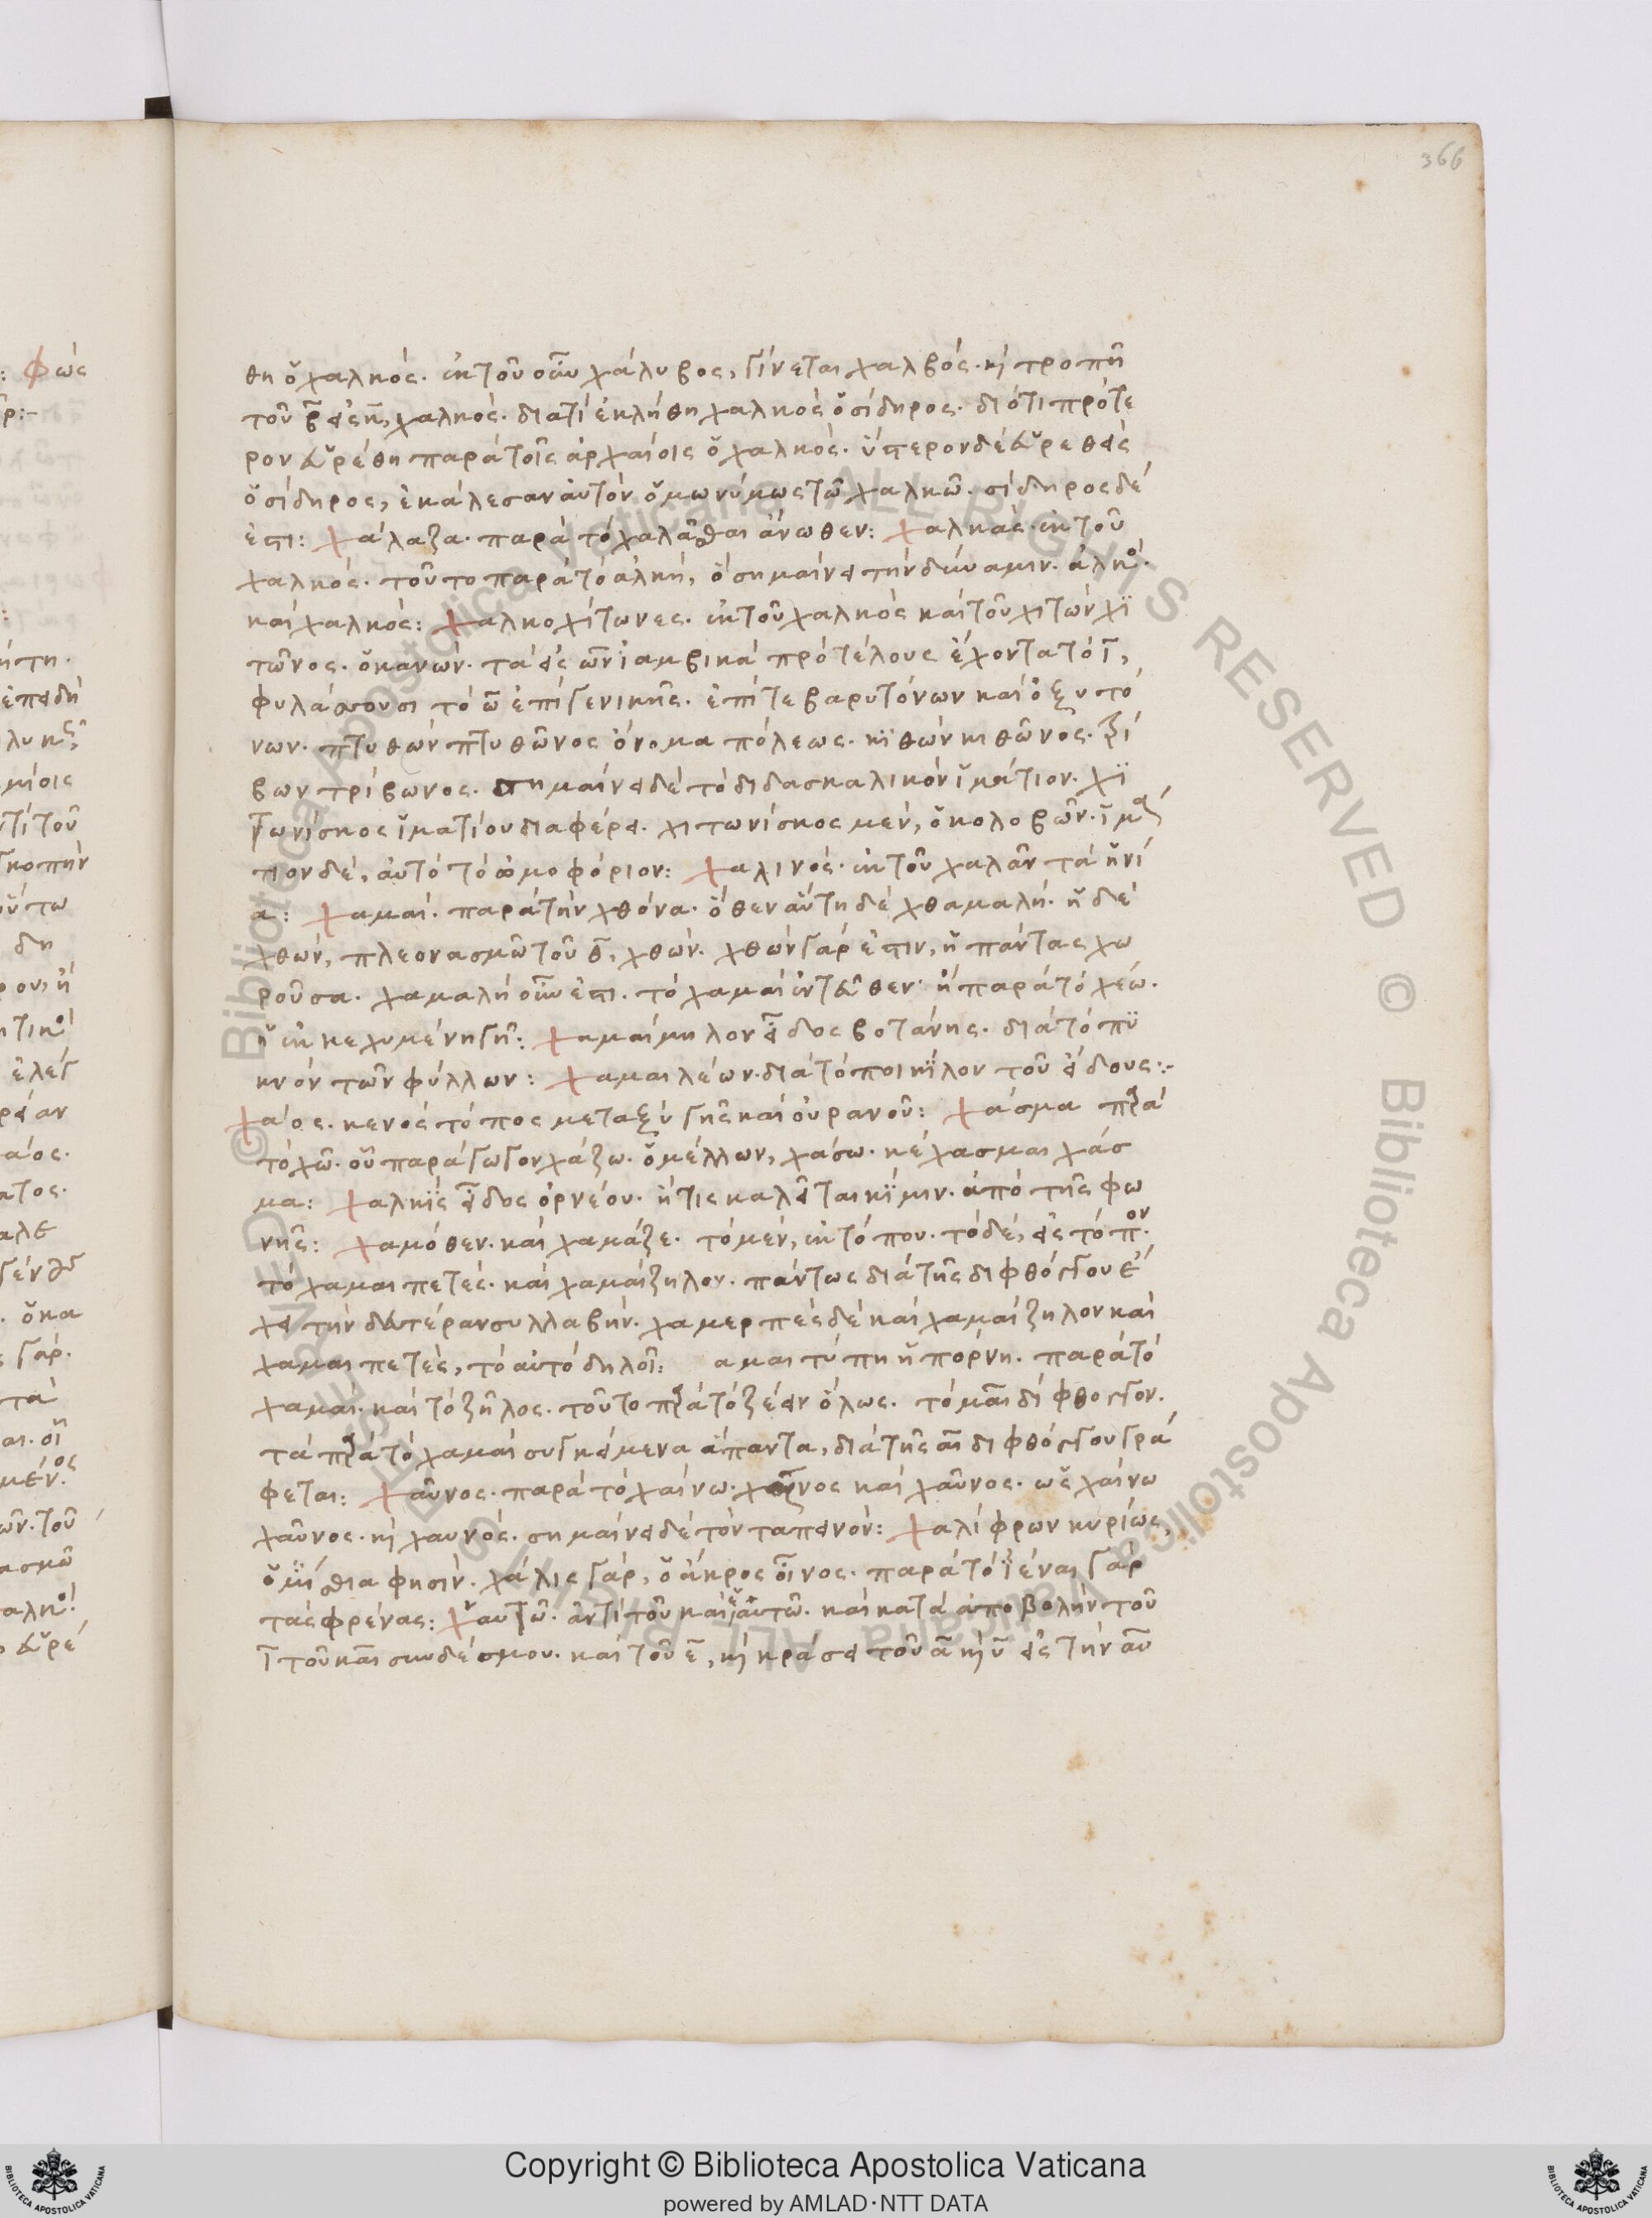 366
θη ὁ χαλκός. ἐκ τοῦ οὖν χάλυβος, γίνεται χαλβός. κ(αὶ) τροπῆ
τοῦ β εἰς κ, χαλκός. διατί ἐκλήθη χαλκὸς ὁ σίδηρος. διότι πρότε
ρον εὑρέθη παρὰ τοῖς ἀρχαίοις ὁ χαλκός. ὕστερον δὲ εὑρεθεὶς
ὁ σίδηρος, ἐκάλεσαν αὐτὸν ὁμωνύμως τῶ χαλκῶ. σίδηρος δέ
ἐστι: Χάλαζα. παρὰ τὸ χαλᾶσθαι ἄνωθεν: Χαλκὰς. ἐκ τοῦ
χαλκός. τοῦτο παρὰ τὸ ἀλκή, ὃ σημαίνει τὴν δύναμιν. ἀλκὸς
καὶ χαλκός: Χαλκοχίτωνες. ἐκ τοῦ χαλκὸς καὶ τοῦ χιτὼν χι
τῶνος. ὁ κανών. τὰ εἰς ων ἰαμβικὰ πρὸ τέλους ἔχοντα τὸ ι,
φυλάττουσι τὸ ω ἐπὶ γενικῆς. ἐπί τε βαρυτόνων καὶ ὀξυτό
νων. πυθὼν πυθῶνος ὄνομα πόλεως. κιθὼν κιθῶνος. τρί
βων τρίβωνος. σημαίνει δὲ τὸ διδασκαλικὸν ἱμάτιον. χι
τωνίσκος ἱματίου διαφέρει. χιτωνίσκος μέν, ὁ κολοβῶν. ἱμά
τιον δέ, αὐτὸ τὸ ὠμοφόριον: Χαλινός. ἐκ τοῦ χαλᾶν τὰ ἡνί
α: Χαμαί. παρὰ τὴν χθόνα. ὅθεν αὕτη δὲ χθαμαλή. ἡ δὲ
χθών, πλεονασμῶ τοῦ θ, χθών. χθὼν γάρ ἐστιν, ἡ πάντας χω
ροῦσα. χαμαλὴ οὖν ἐστι. τὸ χαμαὶ ἐντεῦθεν. ἢ παρὰ τὸ χέω.
ἡ ἐκκεχυμένη γῆ: Χαμαίμηλον εἶδος βοτάνης. διὰ τὸ πυ
κνὸν τῶν φύλλων: Χαμαιλέων. διὰ τὸ ποικίλον τοῦ εἴδους:-
Χάος. κενὸς τόπος μεταξὺ γῆς καὶ οὐρανοῦ: Χάσμα παρὰ
τὸ χῶ. οὗ παράγωγον χάζω. ὁ μέλλων, χάσω. κέχασμαι χάσ
μα: Χαλκὶς εἶδος ὀρνέου. ἥτις καλεῖται κίμιν. ἀπὸ τῆς φω
νῆς: Χαμόθεν. καὶ χαμάζε. τὸ μέν, ἐκ τόπου. τὸ δέ, εἰς τόπον.
τὸ χαμαιπετές. καὶ χαμαίζηλον. πάντως διὰ τῆς διφθόγγου ἔ
χει τὴν δευτέραν συλλαβήν. χαμερπὲς δὲ καὶ χαμαίζηλον καὶ
χαμαιπετές, τὸ αὐτὸ δηλοῖ: αμαιτύπη ἡ πόρνη. παρὰ τὸ
χαμαί. καὶ τὸ ζῆλος. τοῦτο παρὰ τὸ ζέειν ὅλως. τὸ μαι δίφθογγον.
τὰ παρὰ τὸ χαμαὶ συγκείμενα ἅπαντα, διὰ τῆς αι διφθόγγου γρά
φεται: Χαῦνος. παρὰ τὸ χαίνω. καὶ χαῦνος. ὡς χαίνω
χαῦνος. κ(αὶ) χαυνός. σημαίνει δὲ τὸν ταπεινόν: Χαλίφρων κυρίως,
ὁ φησίν. χάλις γάρ, ὁ ἄκρος οἶνος. παρὰ τὸ ἰέναι γὰρ
τὰς φρένας: Χαὐτῶ. ἀντὶ τοῦ καὶ ἑαυτῶ. καὶ κατὰ ἀποβολὴν τοῦ
ι τοῦ καὶ συνδέσμου. καὶ τοῦ ε, κ(αὶ) κράσει τοῦ α κ(αὶ) υ εἰς τὴν αυ
Copyright © Biblioteca Apostolica Vaticana
powered by AMLAD·NTT DATA